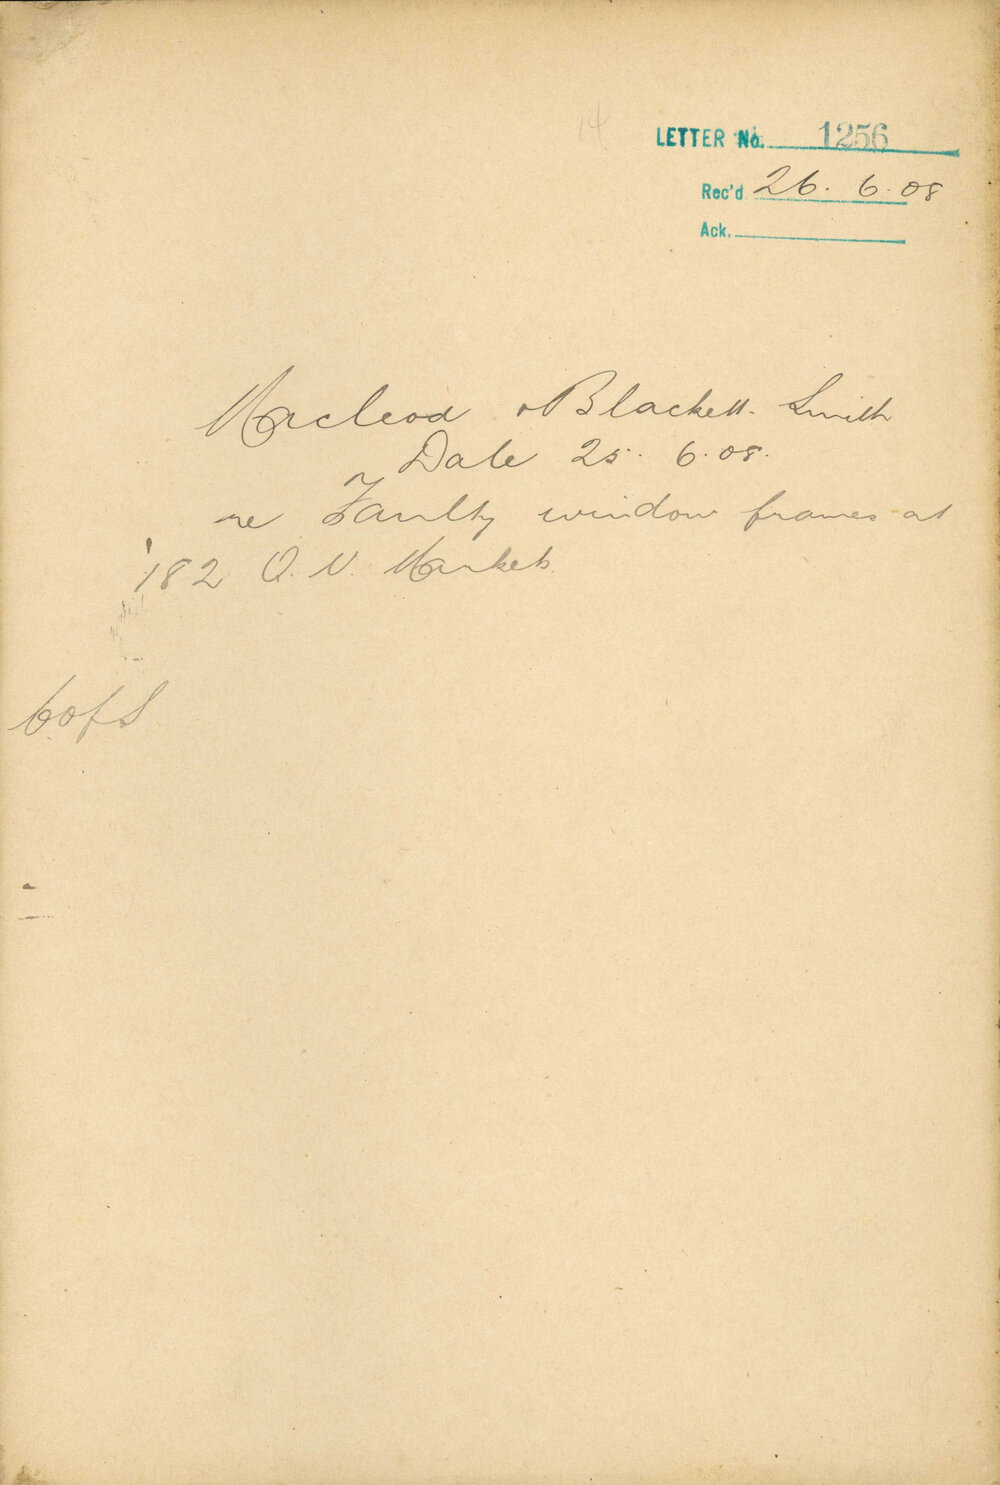 14
LETTER No. 1256
Rec'd 26. 6. 08
Ack.
Macleod & Blackett-Smith
Date 25. 6. 08.
re Faulty window frames at
182 Q. V. Markets
C of S